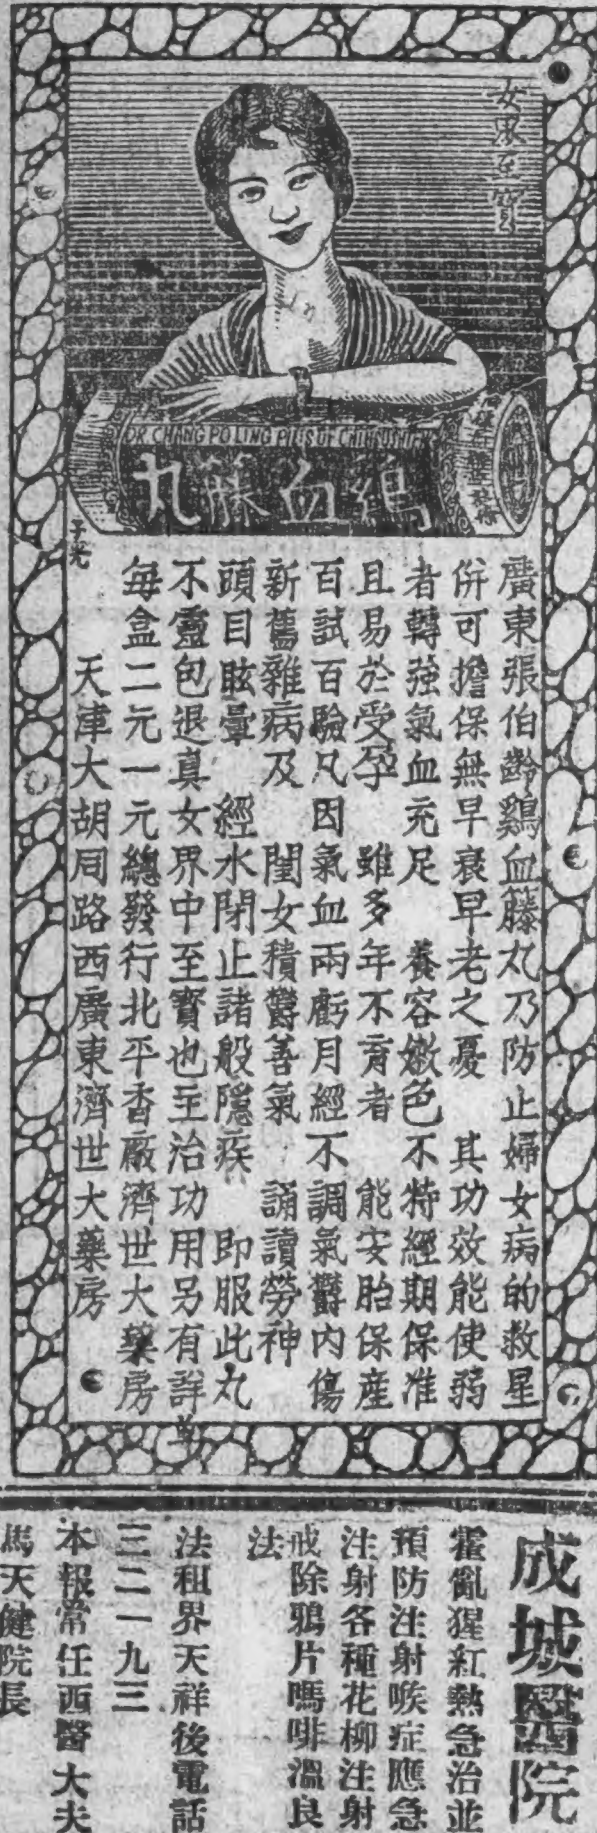 女界至寶
DR. CHANG PO LING PILLS OF CHIHSUHTENG
鷄血藤丸
子光
廣東張伯齡鷄血籐丸乃防止婦女病的救星
併可擔保無早衰早老之憂　其功效能使弱
者轉強氣血充足　養容嫩色不特經期保准
且易於受孕　雖多年不育者　能安胎保産
百試百驗凡因氣血兩虧月經不調氣欝内傷
新舊雜病及　閨女積欝善氣　誦讀勞神
頭目眩暈　經水閉止諸般隱疾　即服此丸
不靈包退真女界中至寳也至治功用另有詳単
每盒二元一元總發行北平香廠濟世大藥房
天津大胡同路西廣東濟世大藥房
成城醫院
霍亂猩紅熱急治並
預防注射喉症應急
注射各種花柳注射
戒除鴉片嗎啡溫良
法
法租界天祥後電話
三二一九三
本報常任西醫大夫
馬天健院長